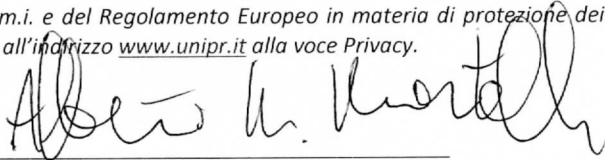 m.i. e del Regolamento Europeo in materia di protezione dei
all'indirizzo www.unipr.it alla voce Privacy.
Alberto M.